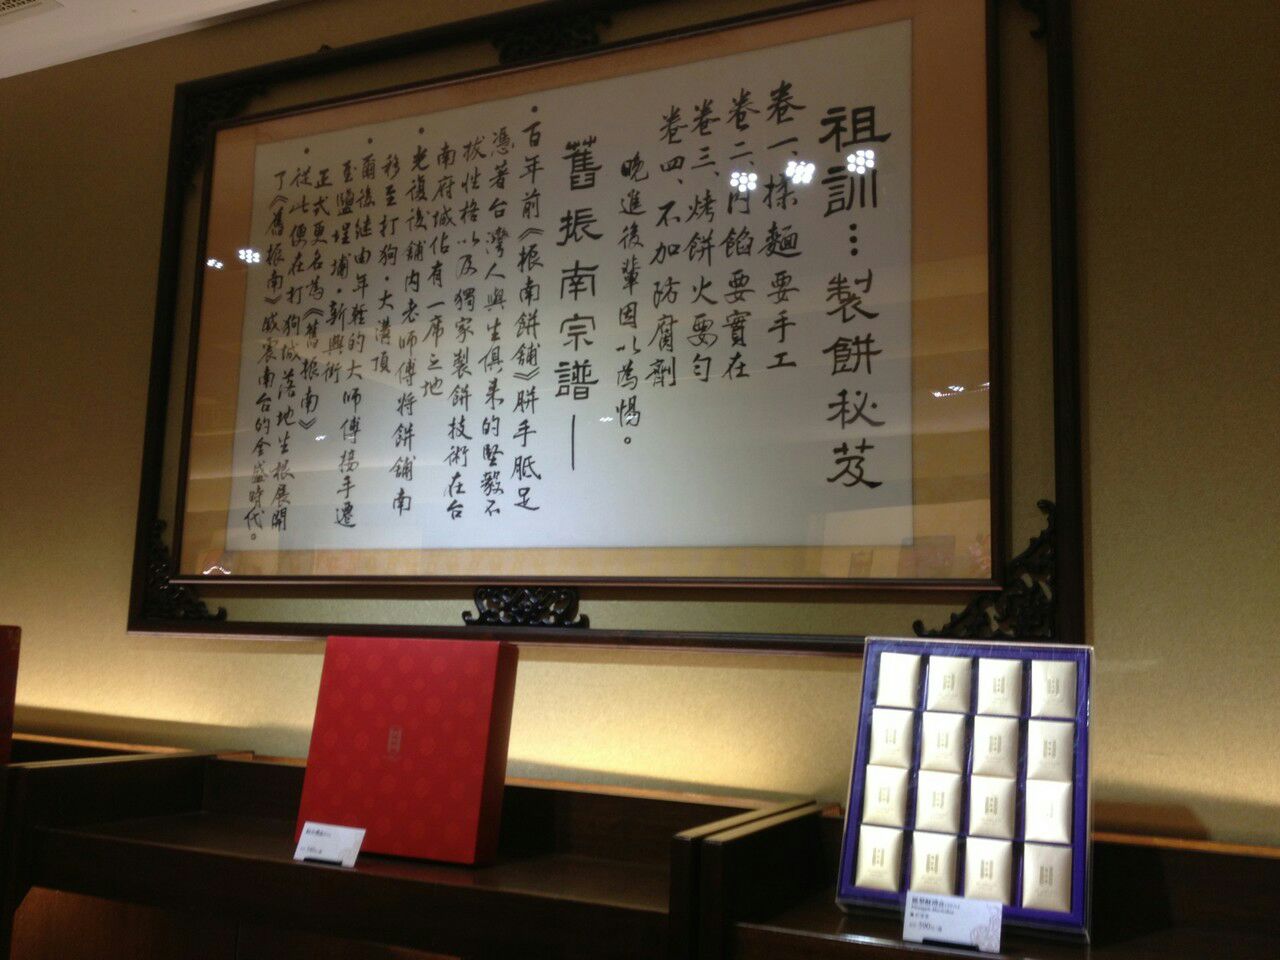 祖訓…製餅秘笈
卷一、揉麵要手工
卷二、內餡要實在
卷三、烤餅火要勻
卷四、不加防腐劑
晚進後輩因以為惕。
舊振南宗譜—
•百年前《振南餅舖》胼手胝足
憑著台灣人與生俱來的堅毅不
拔性格以及獨家製餅技術在台
南府城佔有一席之地
•光復後舖內老師傅將餅舖南
移至打狗•大溝頂
•爾後继由年輕的大師傅接手遷
至鹽埕埔•新興街
正式更名為《舊振南》
•從此便在打狗城落地生根展開
了《舊振南》威震南台的全盛時代。
590